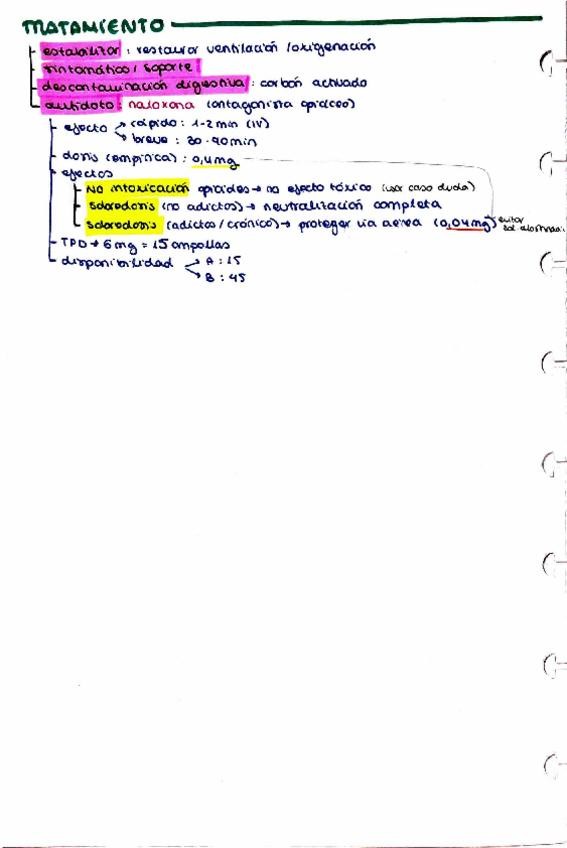 TRATAMIENTO
estabilizar : restaurar ventilación /oxigenación
sintomático / soporte
descontaminación digestiva : carbón activado
antídoto : naloxona (antagonista opiáceo)
efecto rápido : 1-2 min (IV)
breve : 30-90 min
dosis (empírica) : 0,4 mg
efectos
No intoxicación opioides → no efecto tóxico (usar caso duda)
Sobredosis (no adictos) → neutralización completa
Sobredosis (adictos / crónico) → proteger vía aérea (0,04 mg) evitar
sd. abstinencia
TPD → 6 mg = 15 ampollas
disponibilidad A : 15
B : 45